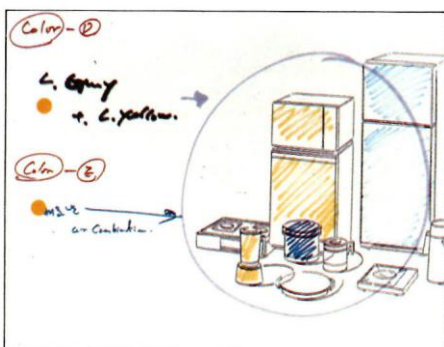 Color - ①
L. Gray
+ L. Yellow.
Color - ②
Combination.